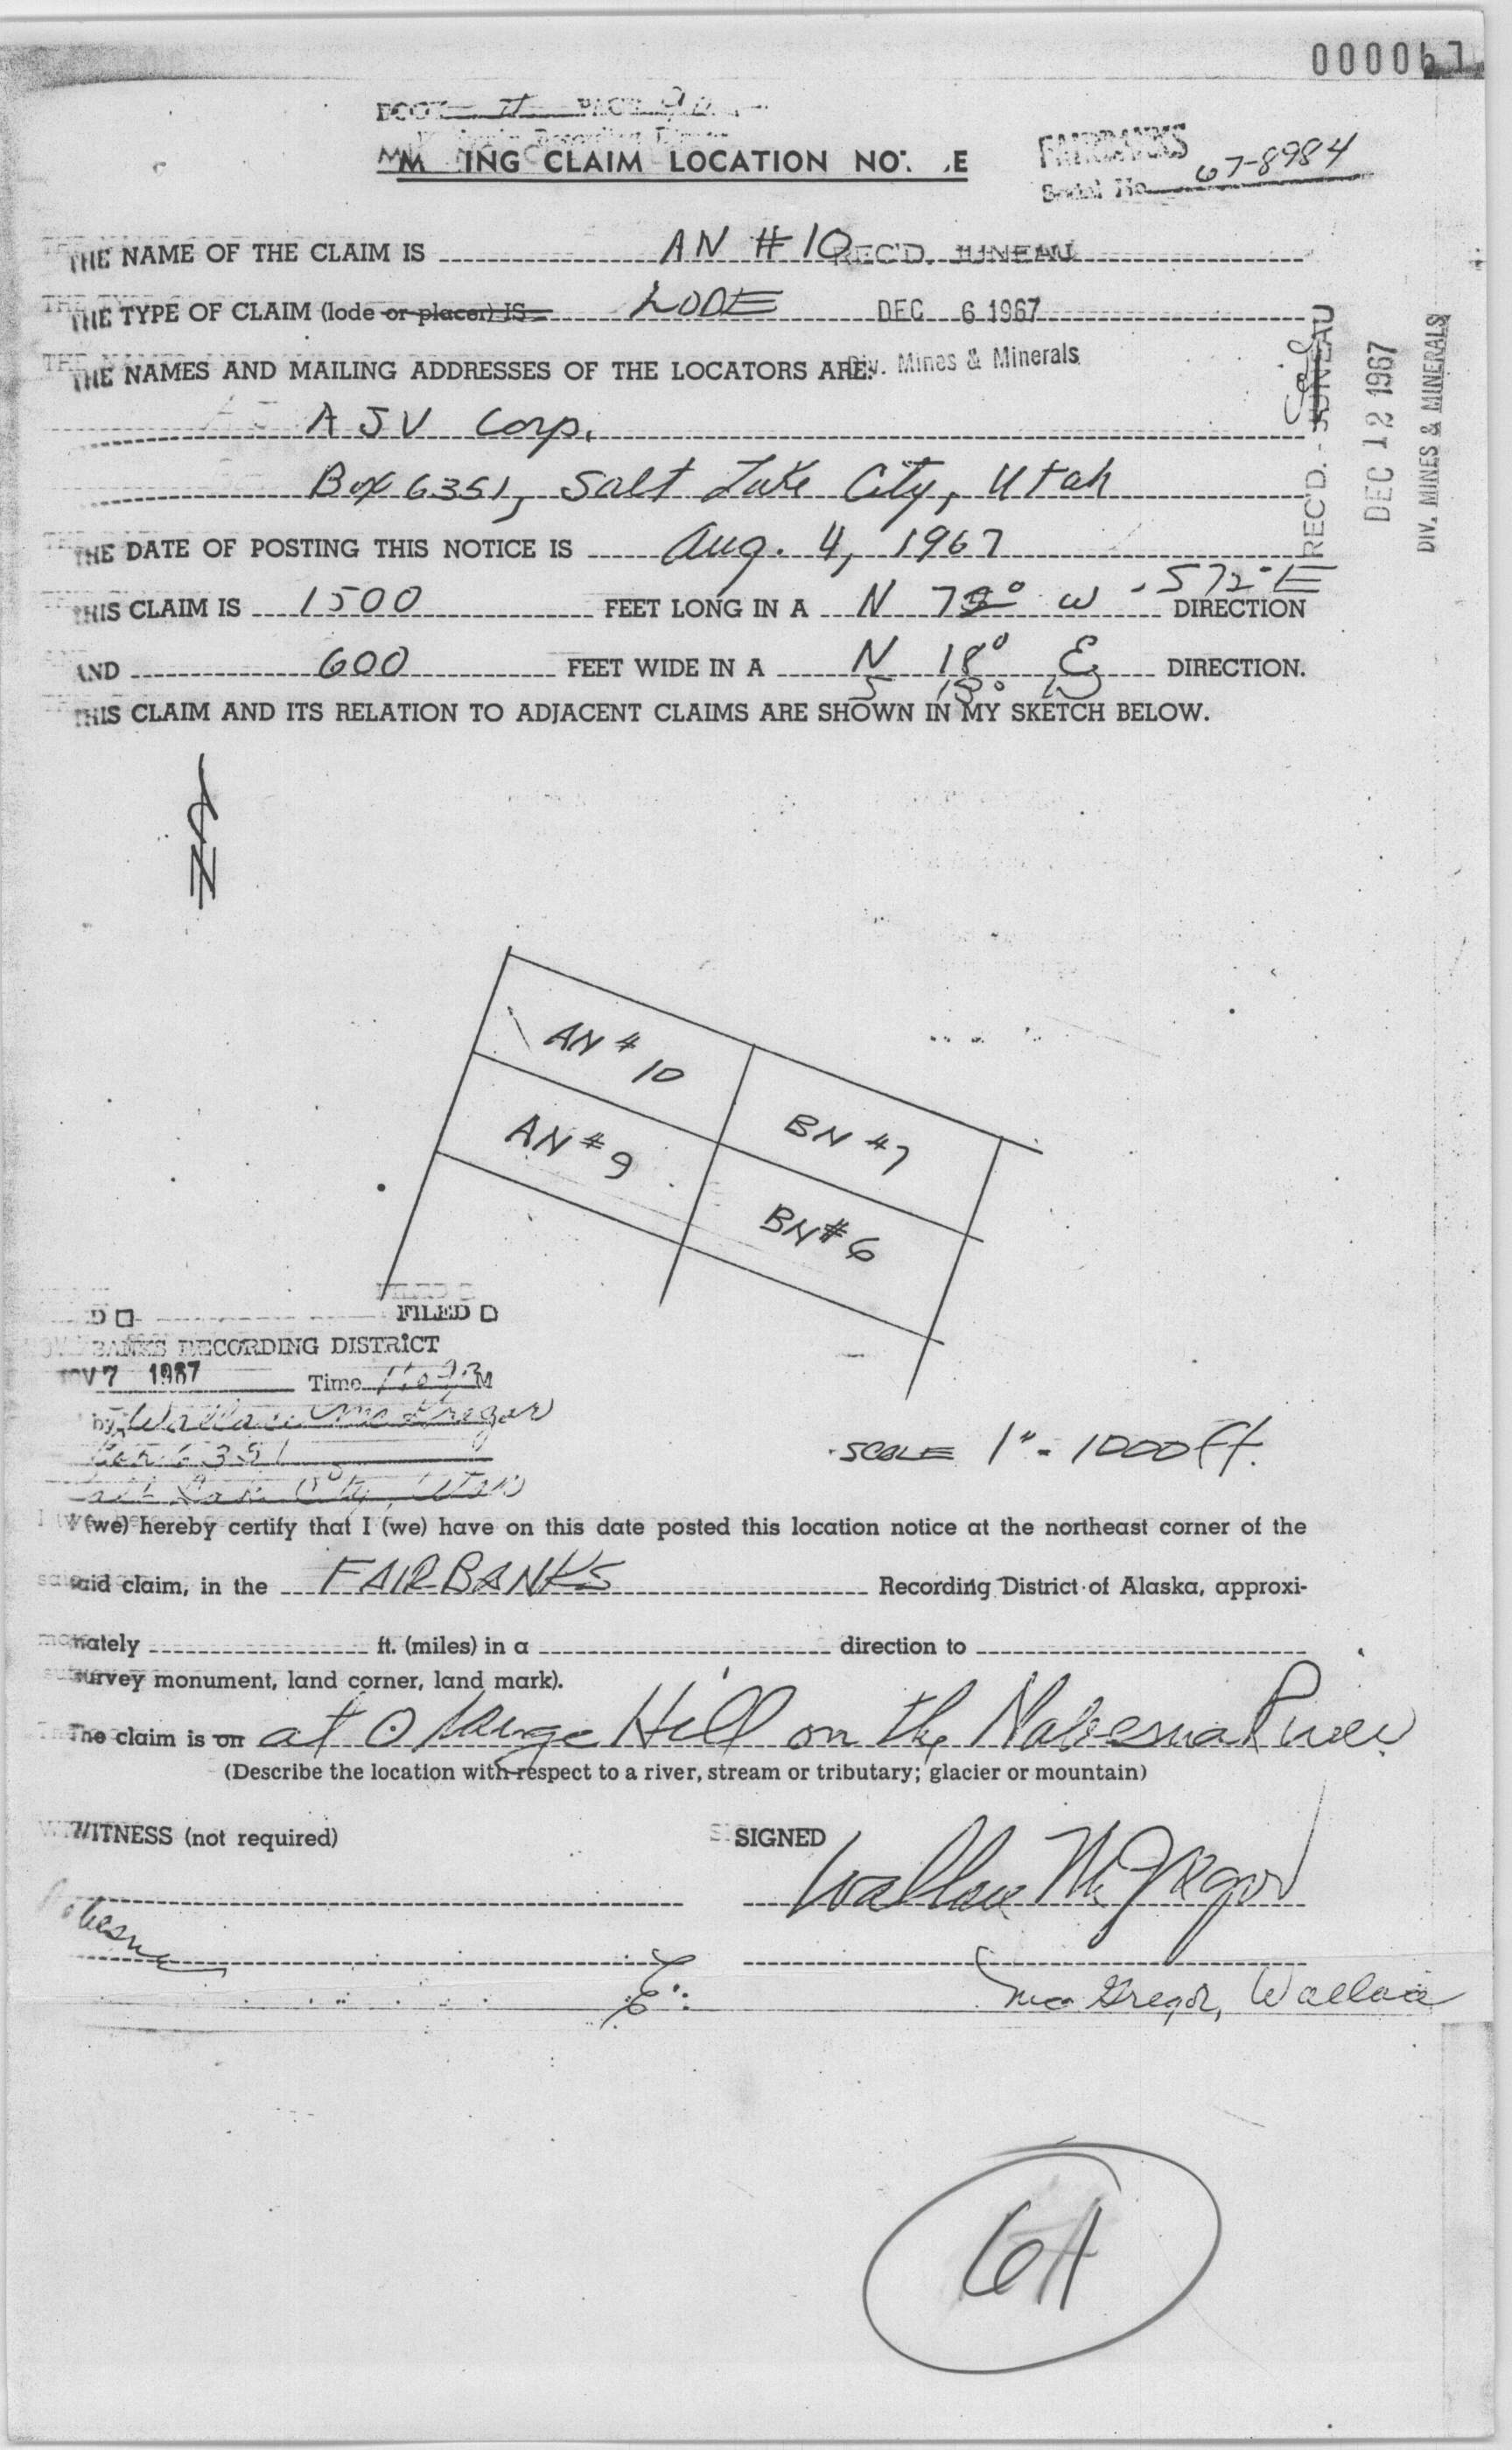 000067
MINING CLAIM LOCATION NOTICE
FAIRBANKS
Serial No. 67-8984
THE NAME OF THE CLAIM IS AN #10 REC'D. JUNEAU
THE TYPE OF CLAIM (lode or placer) IS LODE DEC 6 1967
THE NAMES AND MAILING ADDRESSES OF THE LOCATORS ARE: Div. Mines & Minerals
AJV Corp.
Box 6351, Salt Lake City, Utah
REC'D. - JUNEAU
DEC 12 1967
DIV. MINES & MINERALS
THE DATE OF POSTING THIS NOTICE IS Aug. 4, 1967
THIS CLAIM IS 1500 FEET LONG IN A N 72° W - S 72° E DIRECTION
AND 600 FEET WIDE IN A N 18° E DIRECTION.
S 18° W
THIS CLAIM AND ITS RELATION TO ADJACENT CLAIMS ARE SHOWN IN MY SKETCH BELOW.
N
AN # 10
BN #7
AN # 9
BN # 6
FILED
BANKS RECORDING DISTRICT
NOV 7 1967 Time M
by Wallace McGregor
Box 6351
Salt Lake City, Utah
SCALE 1" = 1000 ft.
I (we) hereby certify that I (we) have on this date posted this location notice at the northeast corner of the
said claim, in the FAIRBANKS Recording District of Alaska, approxi-
mately ft. (miles) in a direction to
survey monument, land corner, land mark).
The claim is on at Orange Hill on the Nabesna River
(Describe the location with respect to a river, stream or tributary; glacier or mountain)
WITNESS (not required) SIGNED
Wallace McGregor
Nabesna
McGregor, Wallace
64